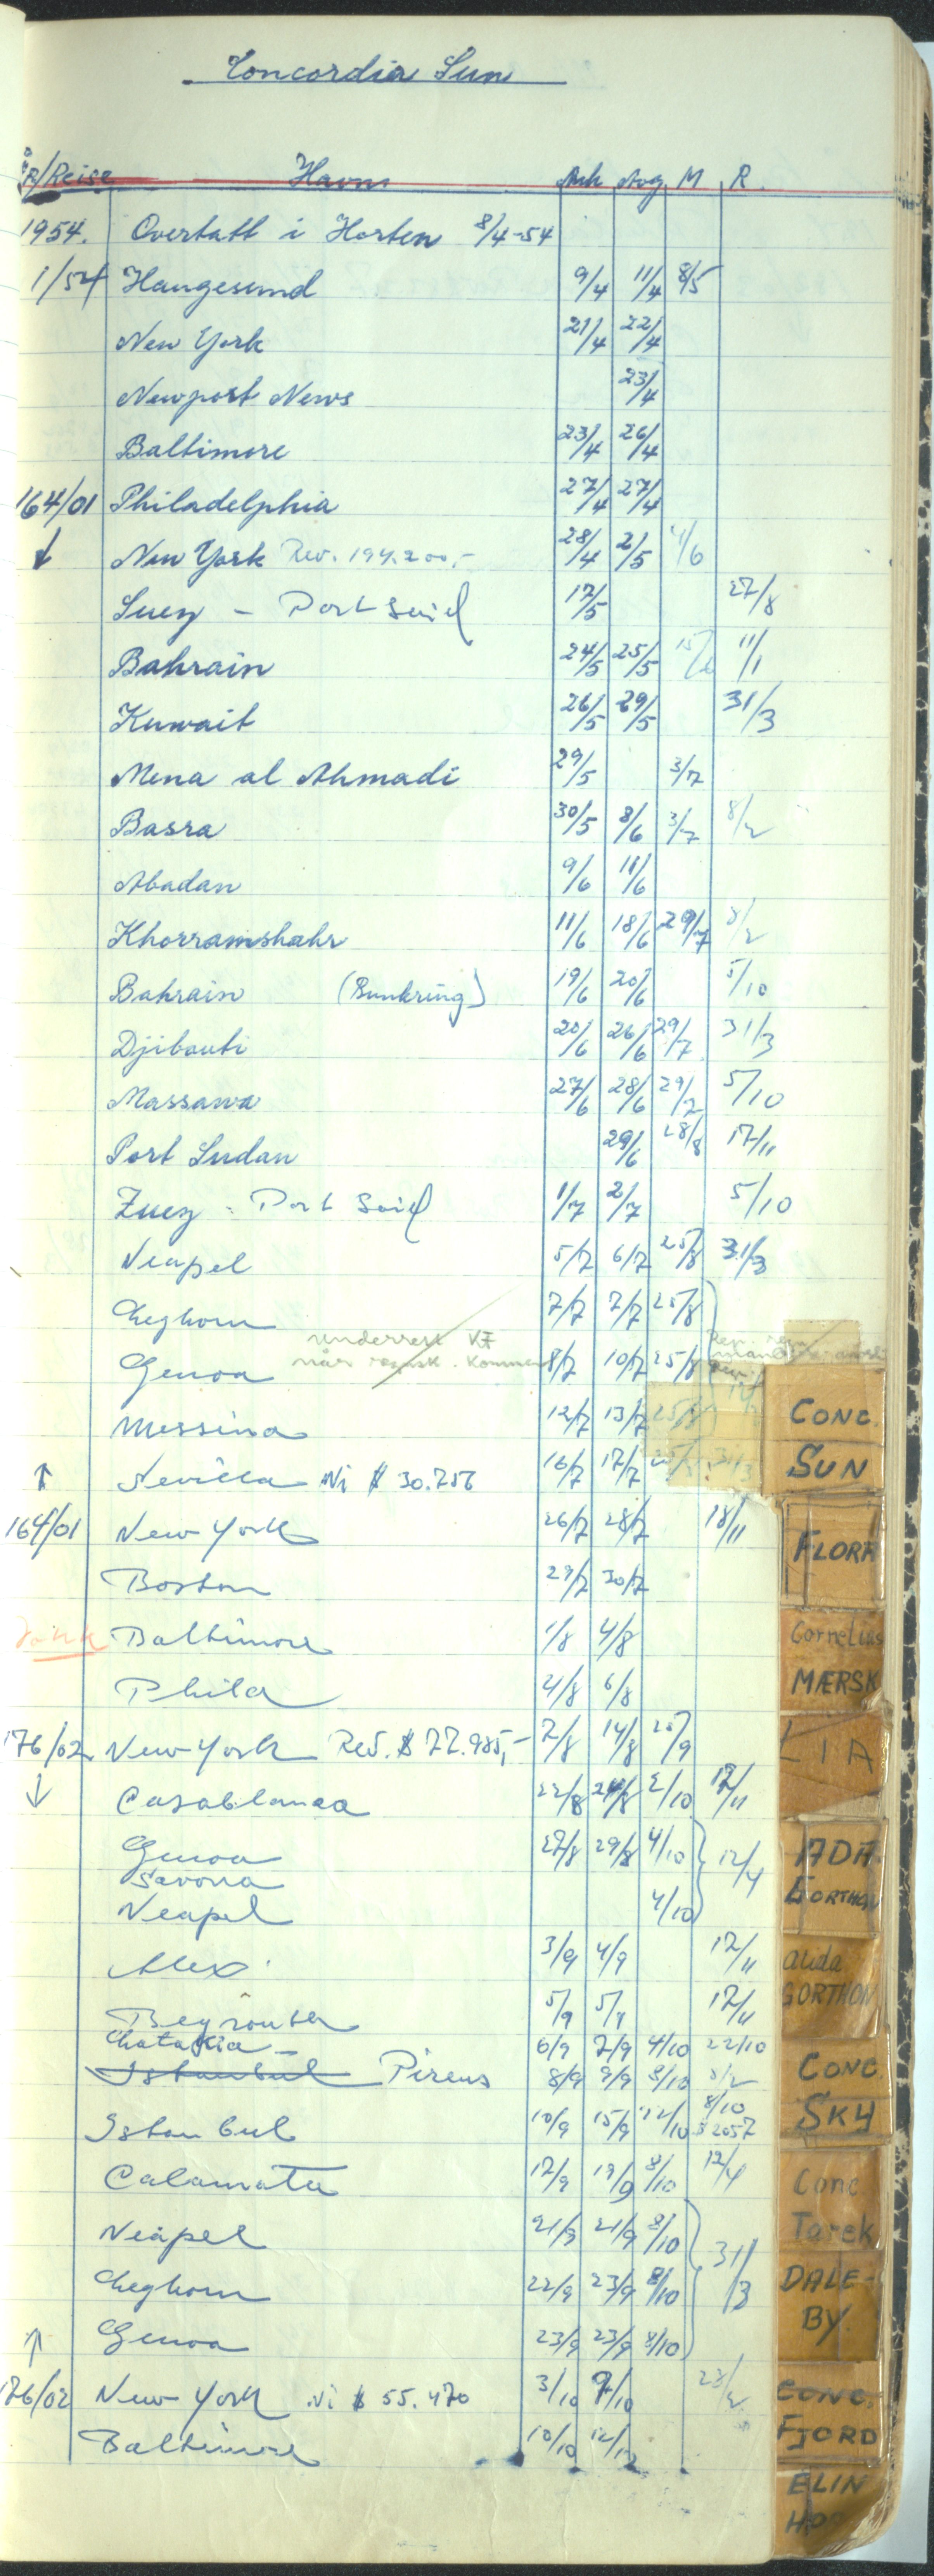 Concordia Sun
R/Reise Havn Ank Avg M R.
1954. Overtatt i Horten 8/4-54
1/54 Haugesund 9/4 11/4 8/5
New York 21/4 22/4
Newport News 23/4
Baltimore 23/4 26/4
164/01 Philadelphia 27/4 27/4
↓ New York Rev. 194.200,- 28/4 2/5 4/6
Suez - Port Said 17/5 27/8
Bahrain 24/5 25/5 11/1
Kuwait 26/5 29/5 31/3
Mena al Ahmadi 29/5 3/7
Basra 30/5 8/6 3/7 8/2
Abadan 9/6 11/6
Khorramshahr 11/6 18/6 29/7 8/2
Bahrain (Bunkring) 19/6 20/6 5/10
Djibouti 20/6 26/6 29/7 31/3
Massawa 27/6 28/6 29/7 5/10
Port Sudan 29/6 28/8 17/11
Zuez - Port Said 1/7 2/7 5/10
Neapel 5/7 6/7 25/8 31/3
Leghorn 7/7 7/7 25/8
underrett KF
når regnsk. kommer
Genoa 8/7 10/7 25/8
Messina 12/7 13/7 25/8
↑ Sevilla Ni $ 30.756 16/7 17/7 31/3
164/01 New York 26/7 28/7 18/11
Boston 29/7 30/7
Baltimore 1/8 4/8
Phila 4/8 6/8
176/02 New York Rev. $ 77.985,- 7/8 14/8 20/9
↓ Casablanca 22/8 24/8 2/10 17/11
Genoa 27/8 29/8 4/10 12/4
Savona
Neapel 4/10
Alex. 3/9 4/9 17/11
Beyrouth 5/9 5/9 17/11
Latakia 6/9 7/9 4/10 22/10
Istanbul Pireus 8/9 9/9 8/10 8/2
Istanbul 10/9 15/9 12/10 8/10 $ 2057
Calamata 17/9 19/9 8/10 12/4
Neapel 21/9 21/9 8/10
Leghorn 22/9 23/9 8/10 31/3
↑ Genoa 23/9 23/9 8/10
176/02 New York Ni $ 55.470 3/10 9/10 23/2
Baltimore 10/10 12/10
CONC.
SUN
FLORA
Cornelius
MÆRSK
LIA
ADA
GORTHON
Alida
GORTHON
CONC.
SKY
Conc
Tarek
DALE-
BY.
CONC.
FJORD
ELIN